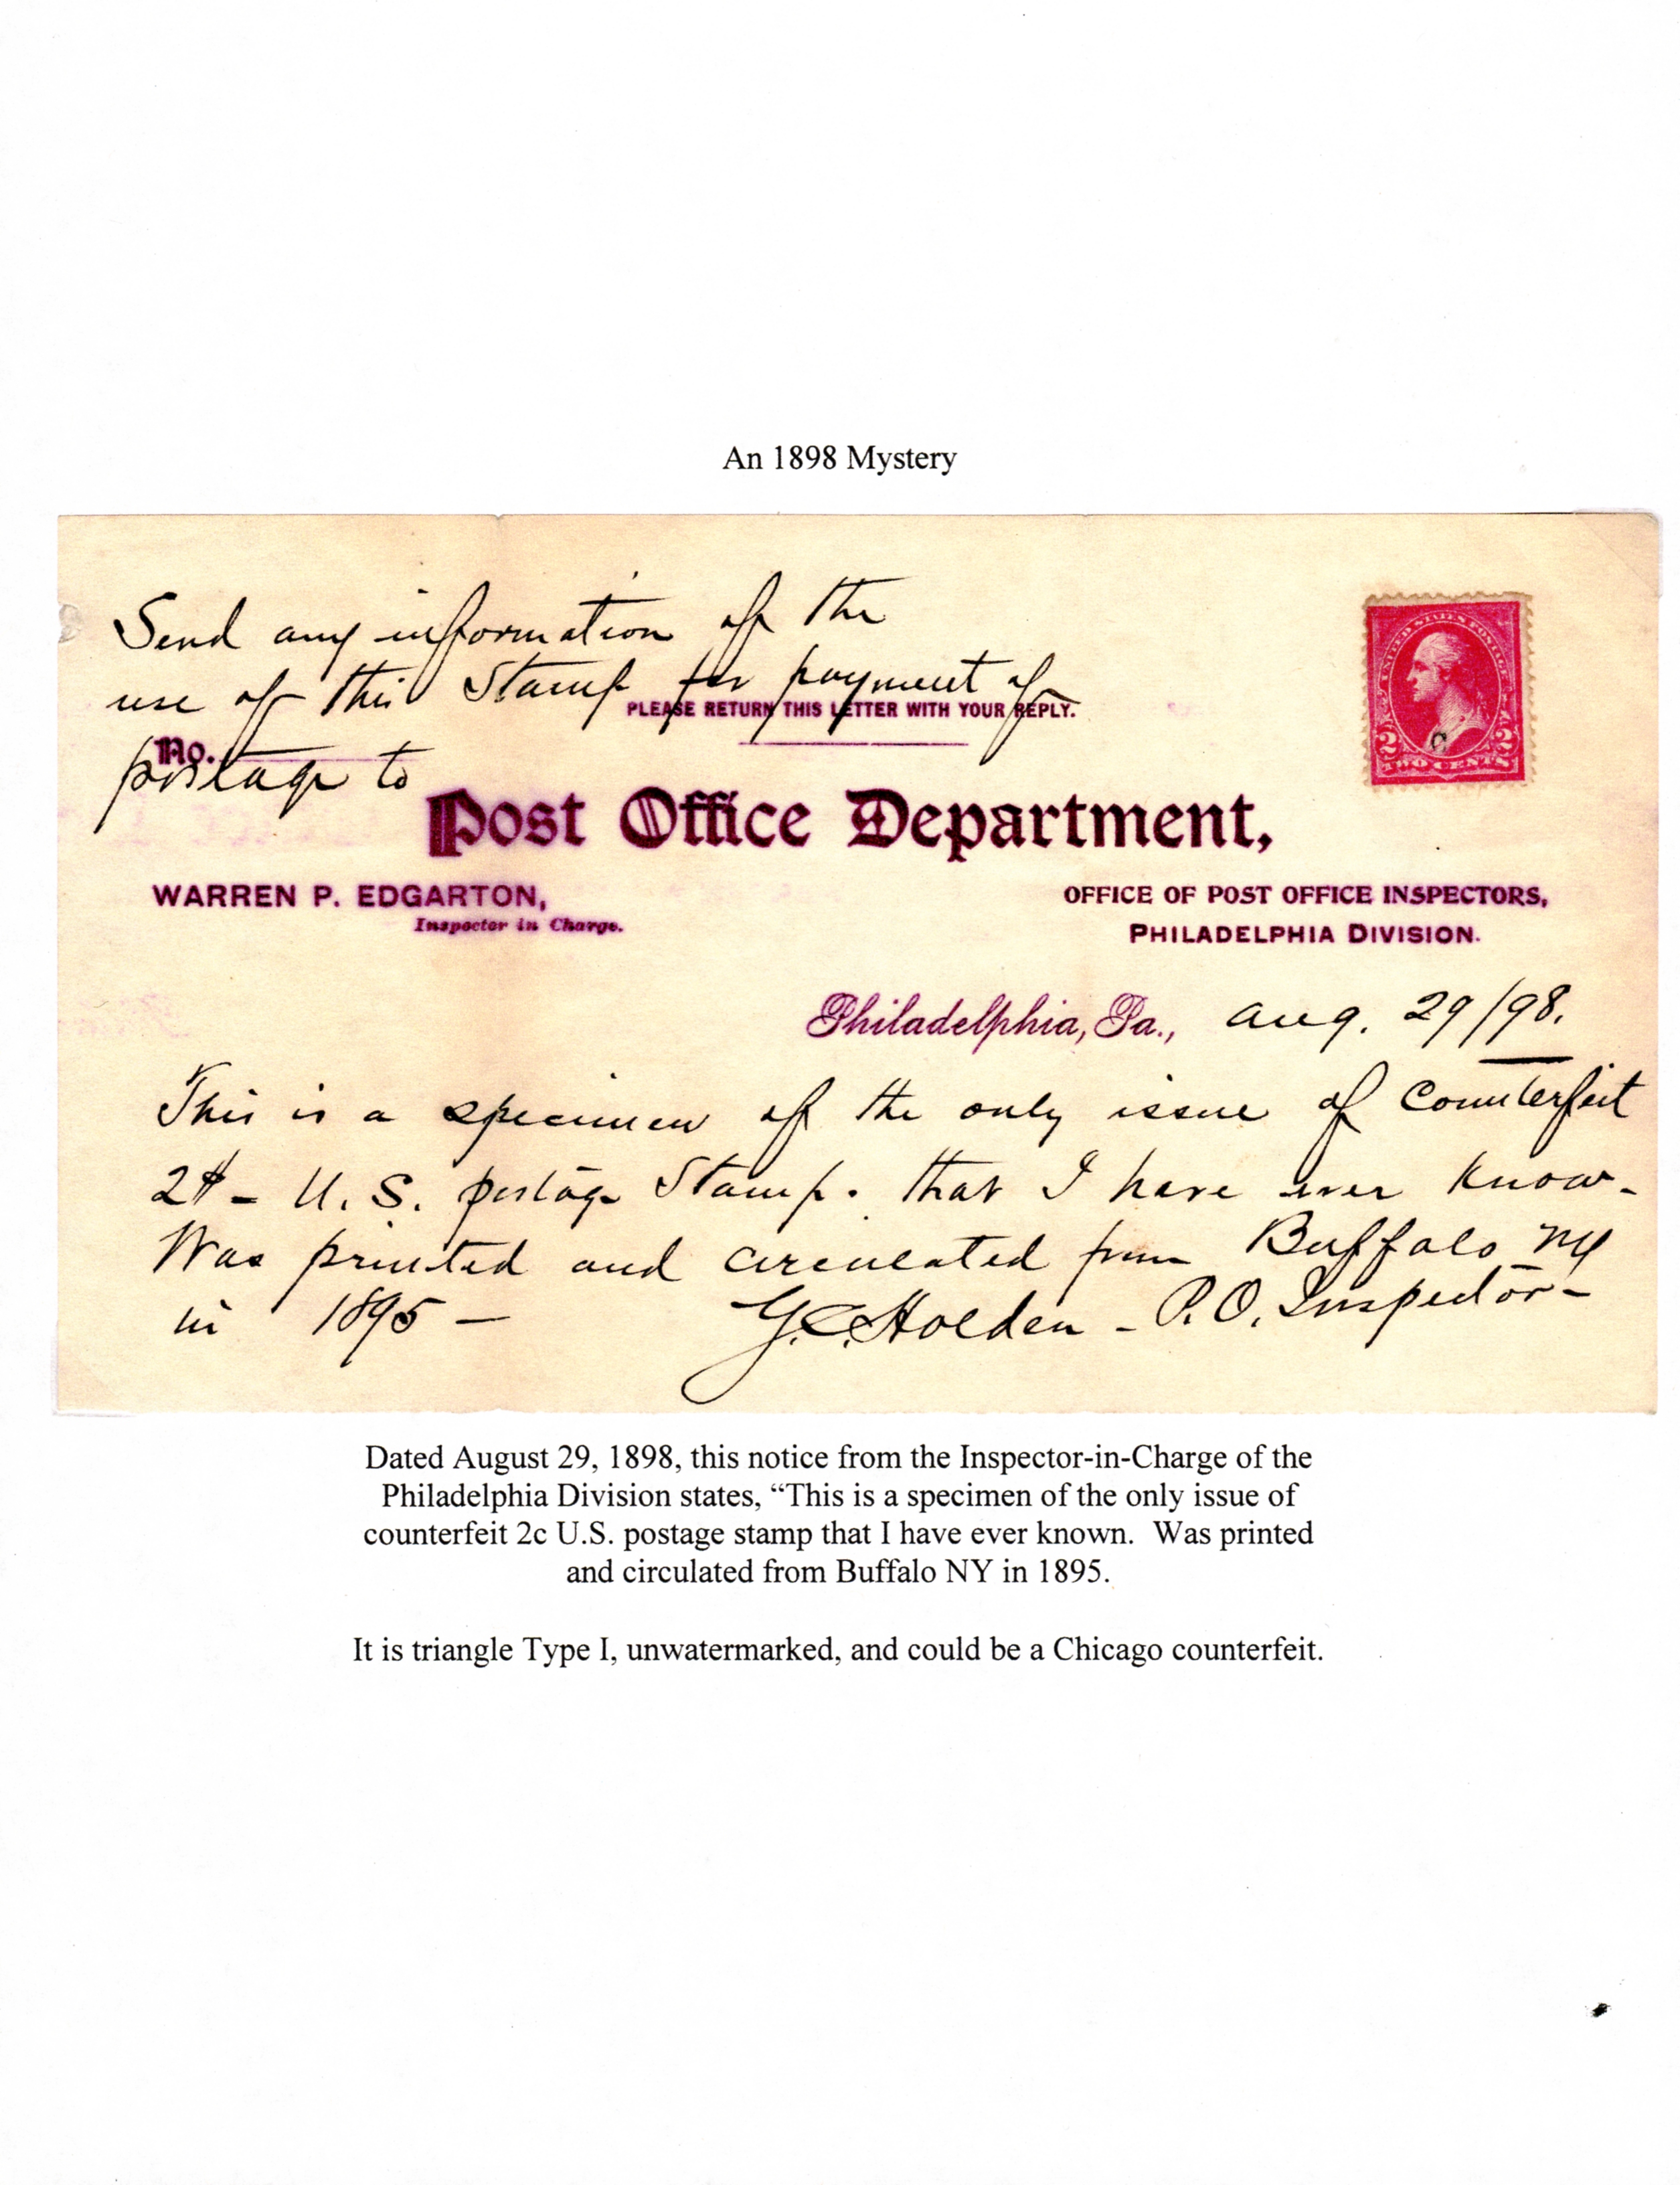 An 1898 Mystery
Send any information of the
use of this Stamp for payment of
PLEASE RETURN THIS LETTER WITH YOUR REPLY.
No.
postage to
Post Office Department,
WARREN P. EDGARTON,
Inspector in Charge.
OFFICE OF POST OFFICE INSPECTORS,
PHILADELPHIA DIVISION.
Philadelphia, Pa., Aug. 29/98.
This is a specimen of the only issue of Counterfeit
2¢ - U.S. postage Stamp. that I have ever know-
Was printed and circulated from Buffalo NY
in 1895 - G.C. Holden - P.O. Inspector-
UNITED STATES POSTAGE
2 2
TWO CENTS
Dated August 29, 1898, this notice from the Inspector-in-Charge of the
Philadelphia Division states, “This is a specimen of the only issue of
counterfeit 2c U.S. postage stamp that I have ever known. Was printed
and circulated from Buffalo NY in 1895.
It is triangle Type I, unwatermarked, and could be a Chicago counterfeit.